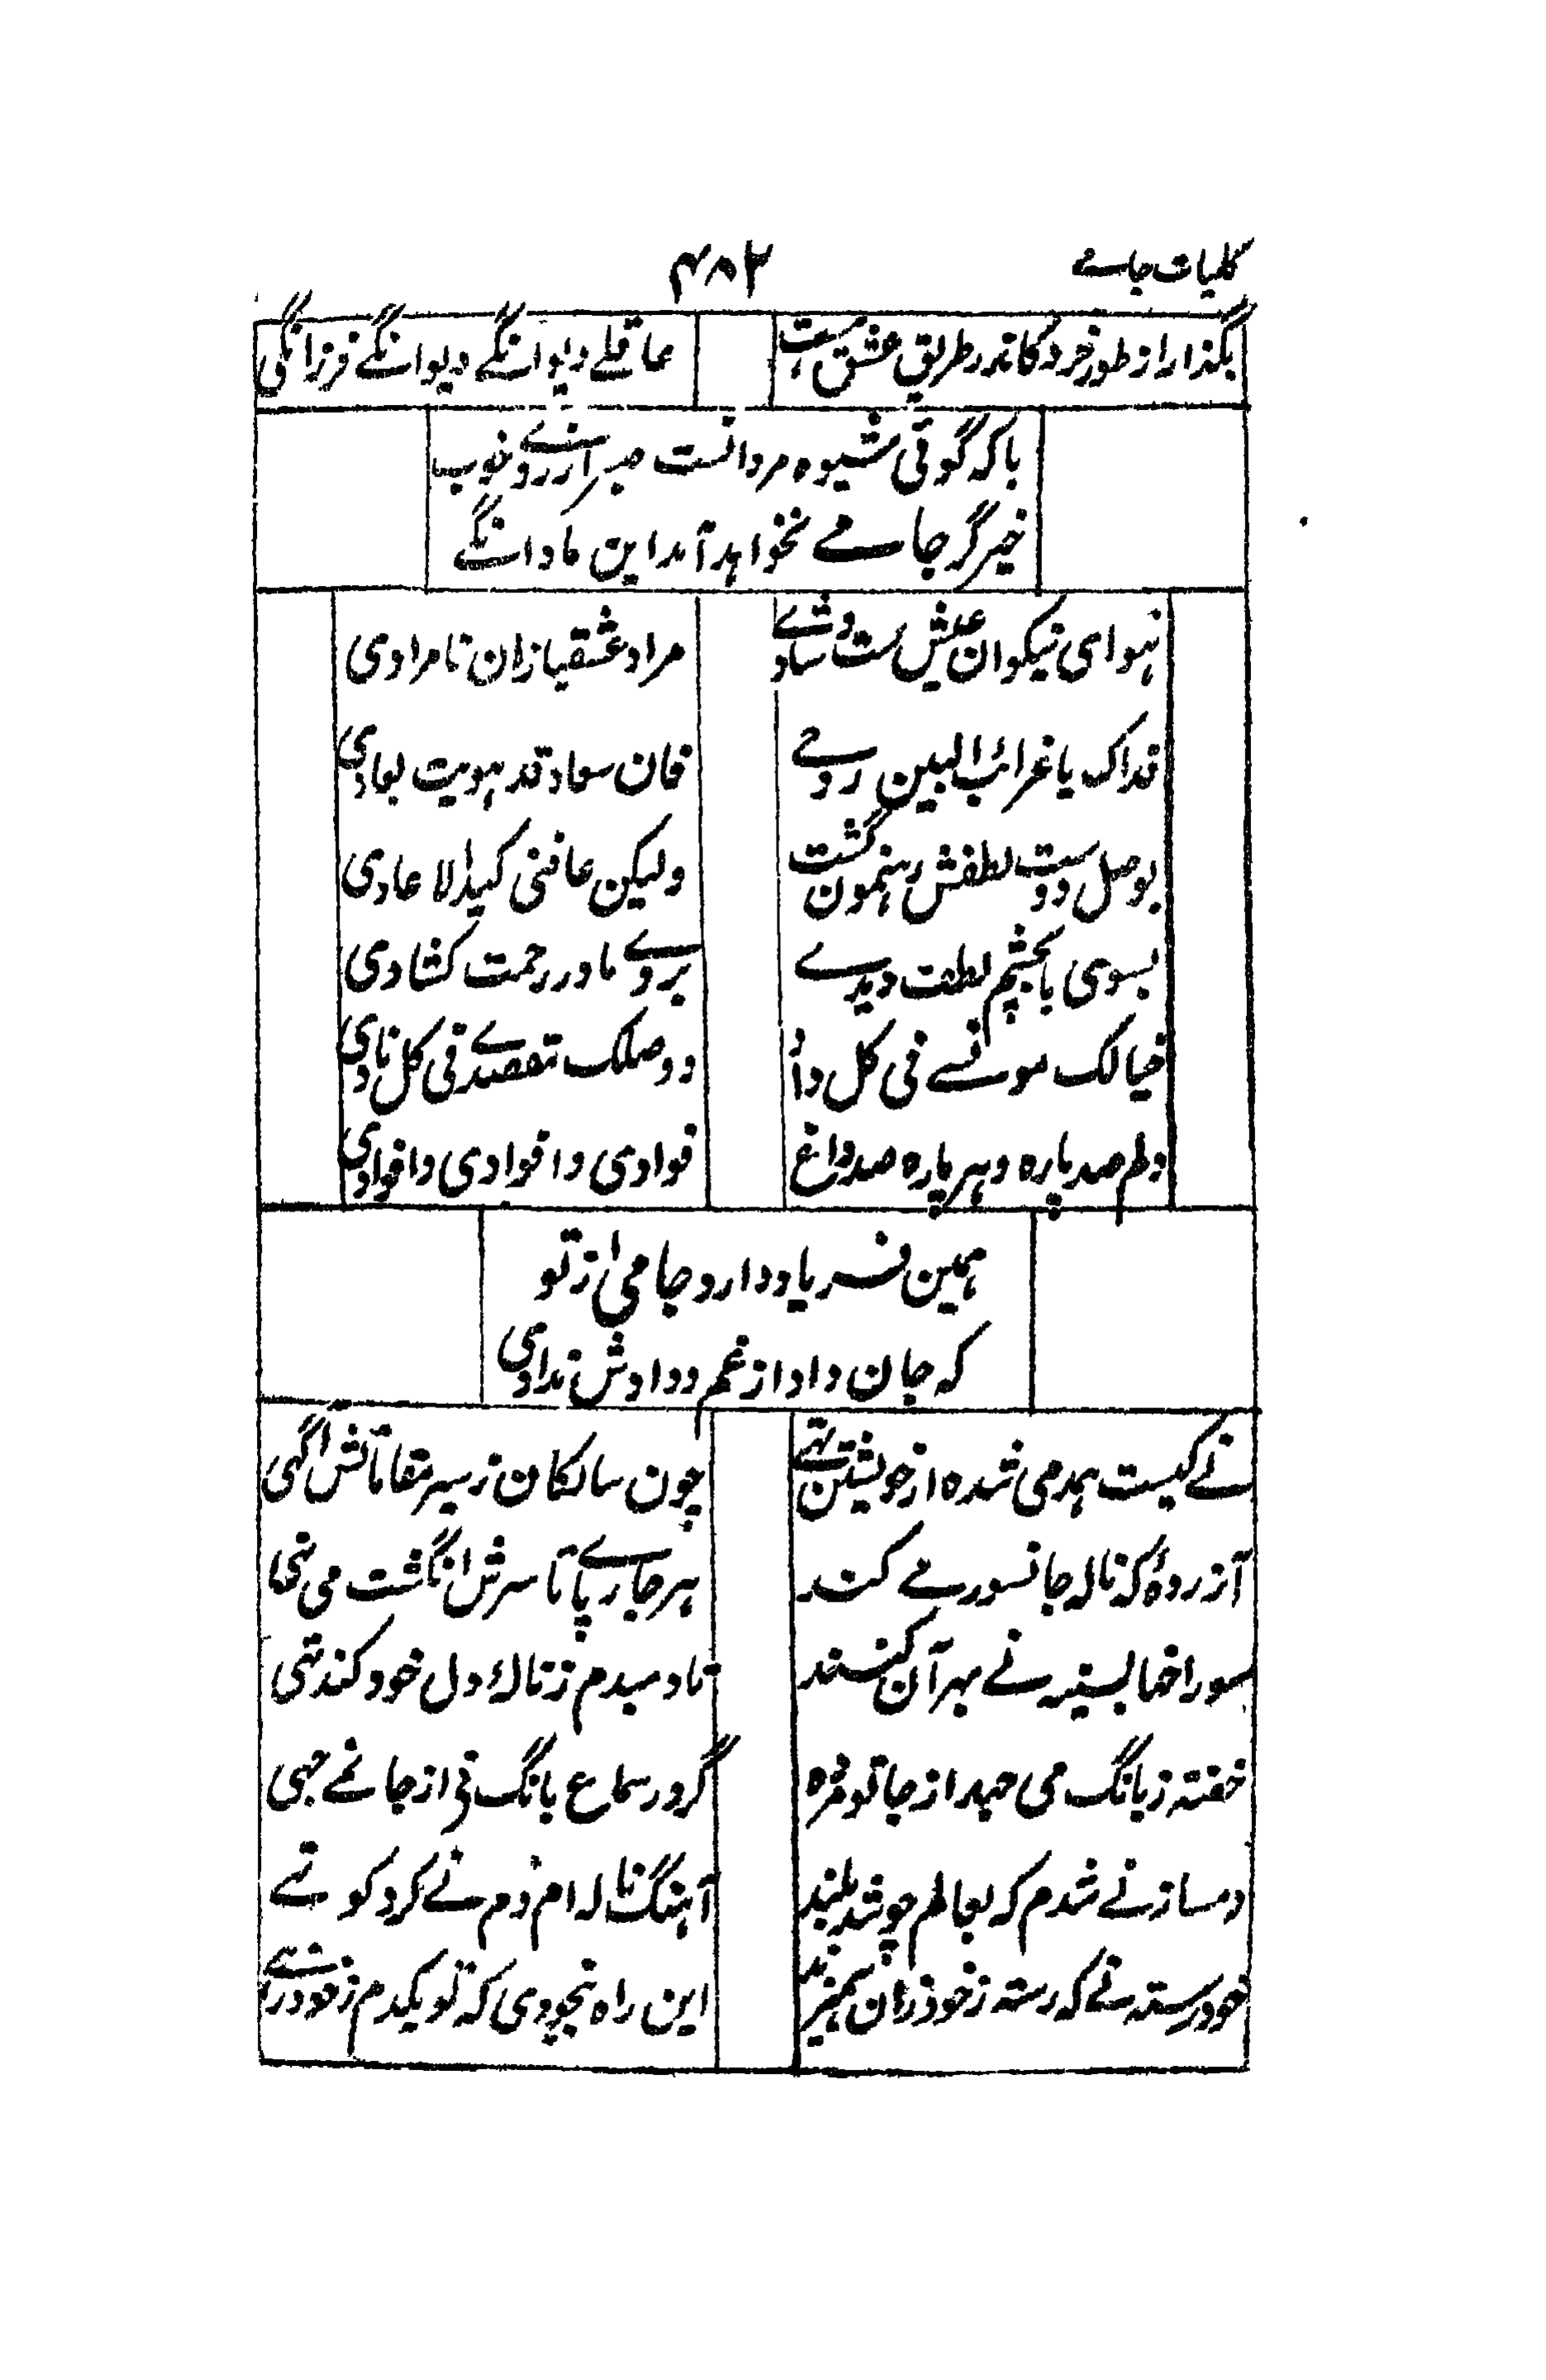 کلیات جامے
۴۸۲
بگذار از طور خرد کاندر طریق عشق ہست
عاقلے دیوانگے دیوانگے فرزانگی
باکہ گوئی شیوہ مردانست صبر از روے خوب
خیر گر جامے نخواہد آمد این مادانگے
ہوای نیکوان عیش ست و شادے
مراد عشقبازان نامرادی
فداک یا غرائب البین روحے
فان سعاد قد ہویت بعادی
بوصل دوست لطفش رہنمون گشت
ولیکن عاقنی کید الاعادی
بسوی ما بچشم لطف دیدے
بروے ما در رحمت کشادی
خیالک مونسے فی کل واد
ووصلک مقصدے فی کل نادی
دلم صد پارہ و ہر پارہ صد داغ
فوادی وا فوادی وا فوادی
ہمین فریاد دارد جامی از تو
کہ جان داد از غم و دادش ندادی
نے کیست ہمدمی شدہ از خویشتن تہے
چون سالکان ز سیر مقاماتش آگہی
آنزردۂ کہ نالہ جانسوز مے کند
ہر جا رپے تا سرش انگشت می نہی
سوراخہا بسینہ نے بہر آن کنند
تا دمبدم ز نالۂ دل خود کند تہی
خفتہ ز بانگ می جہد از جا تو مردہ
گر در سماع بانگ نی از جا نمے جہی
دمساز نے شدم کہ بعالم چو شد بلند
آہنگ نالہ ام دم نے کرد کوتہے
خود رستہ نے کہ رستہ ز خود زان ہمیزند
این راہ بیخودی کہ تو یکدم ز خود رہے